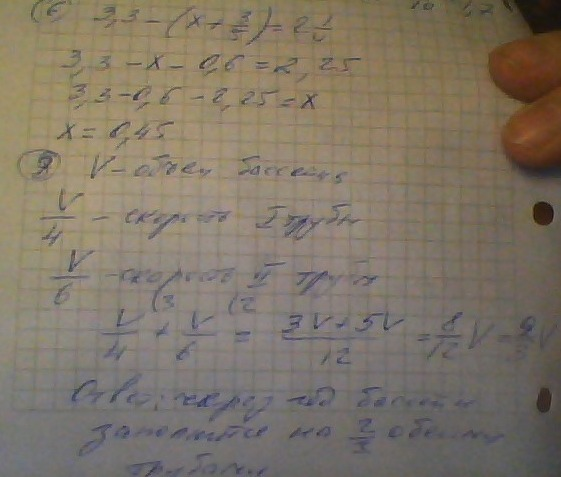 6) 3,3 - (x + 3/5) = 2 1/4
3,3 - x - 0,6 = 2,25
3,3 - 0,6 - 2,25 = x
x = 0,45
V - объем бассейна
V/4 - скорость I трубы
V/6 - скорость II трубы
V/4 + V/6 = (3V + 5V)/12 = 8/12 V = 2/3 V
Ответ: через бассейн
заполнится на 2/3 обеими
трубами